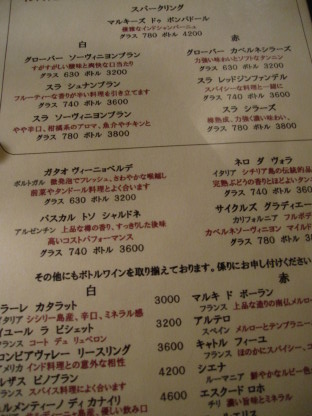 スパークリング
マルキーズ ドゥ ポンパドール
グラス 780 ボトル 4200
白
グローバー ソーヴィニヨンブラン
すがすがしい酸味と爽快な口当たり
グラス 630 ボトル 3200
スラ シュナンブラン
フルーティーな香りが辛い料理を引き立てます
グラス 740 ボトル 3600
スラ ソーヴィニヨンブラン
やや辛口、柑橘系のアロマ、魚介やチキンと
グラス 780 ボトル 3800
赤
グローバー カベルネシラーズ
力強い味わいとソフトなタンニン
グラス 630 ボトル 3200
スラ レッドジンファンデル
スパイシーな料理と一緒に
グラス 740 ボトル 3600
スラ シラーズ
グラス 780 ボトル 3800
ガタオ ヴィーニョベルデ
ポルトガル 微発泡でフレッシュ、さわやかな喉越し
前菜やタンドール料理とよく合います
グラス 630 ボトル 3200
パスカル トソ シャルドネ
アルゼンチン 上品な樽の香り、すっきりした後味
高いコストパフォーマンス
グラス 740 ボトル 3600
ネロ ダ ヴォラ
イタリア シチリア島の伝統的
完熟ぶどうの香りとほどよいタン
グラス 740 ボト
サイクルズ グラディエー
カリフォルニア フルボデ
カベルネソーヴィニヨン マイルド
グラス 780 ボト
その他にもボトルワインを取り揃えております。係りにお申し付けください
白
ラーレ カタラット 3000
イタリア シシリー島産、辛口、ミネラル感
イユール ラ ビシェット 3200
フランス コート デュ リュベロン
コロンビアヴァレー リースリング 3600
アメリカ インド料理との意外な相性
ルザス ピノブラン 4200
フランス スパイス料理によく合います
ルメンティーノ ディ カナイリ 4600
赤
マルキ ド ボーラン
フランス 上品な造りの南仏メルロー
アルテロ
スペイン メルローとテンプラニー
キャトル フィーユ
フランス ほのかにスパイシー、コ
シエナ
ルーマニア 鮮やかなルビー色
エスタード ロホ
チリ 濃い旨味とミネラル